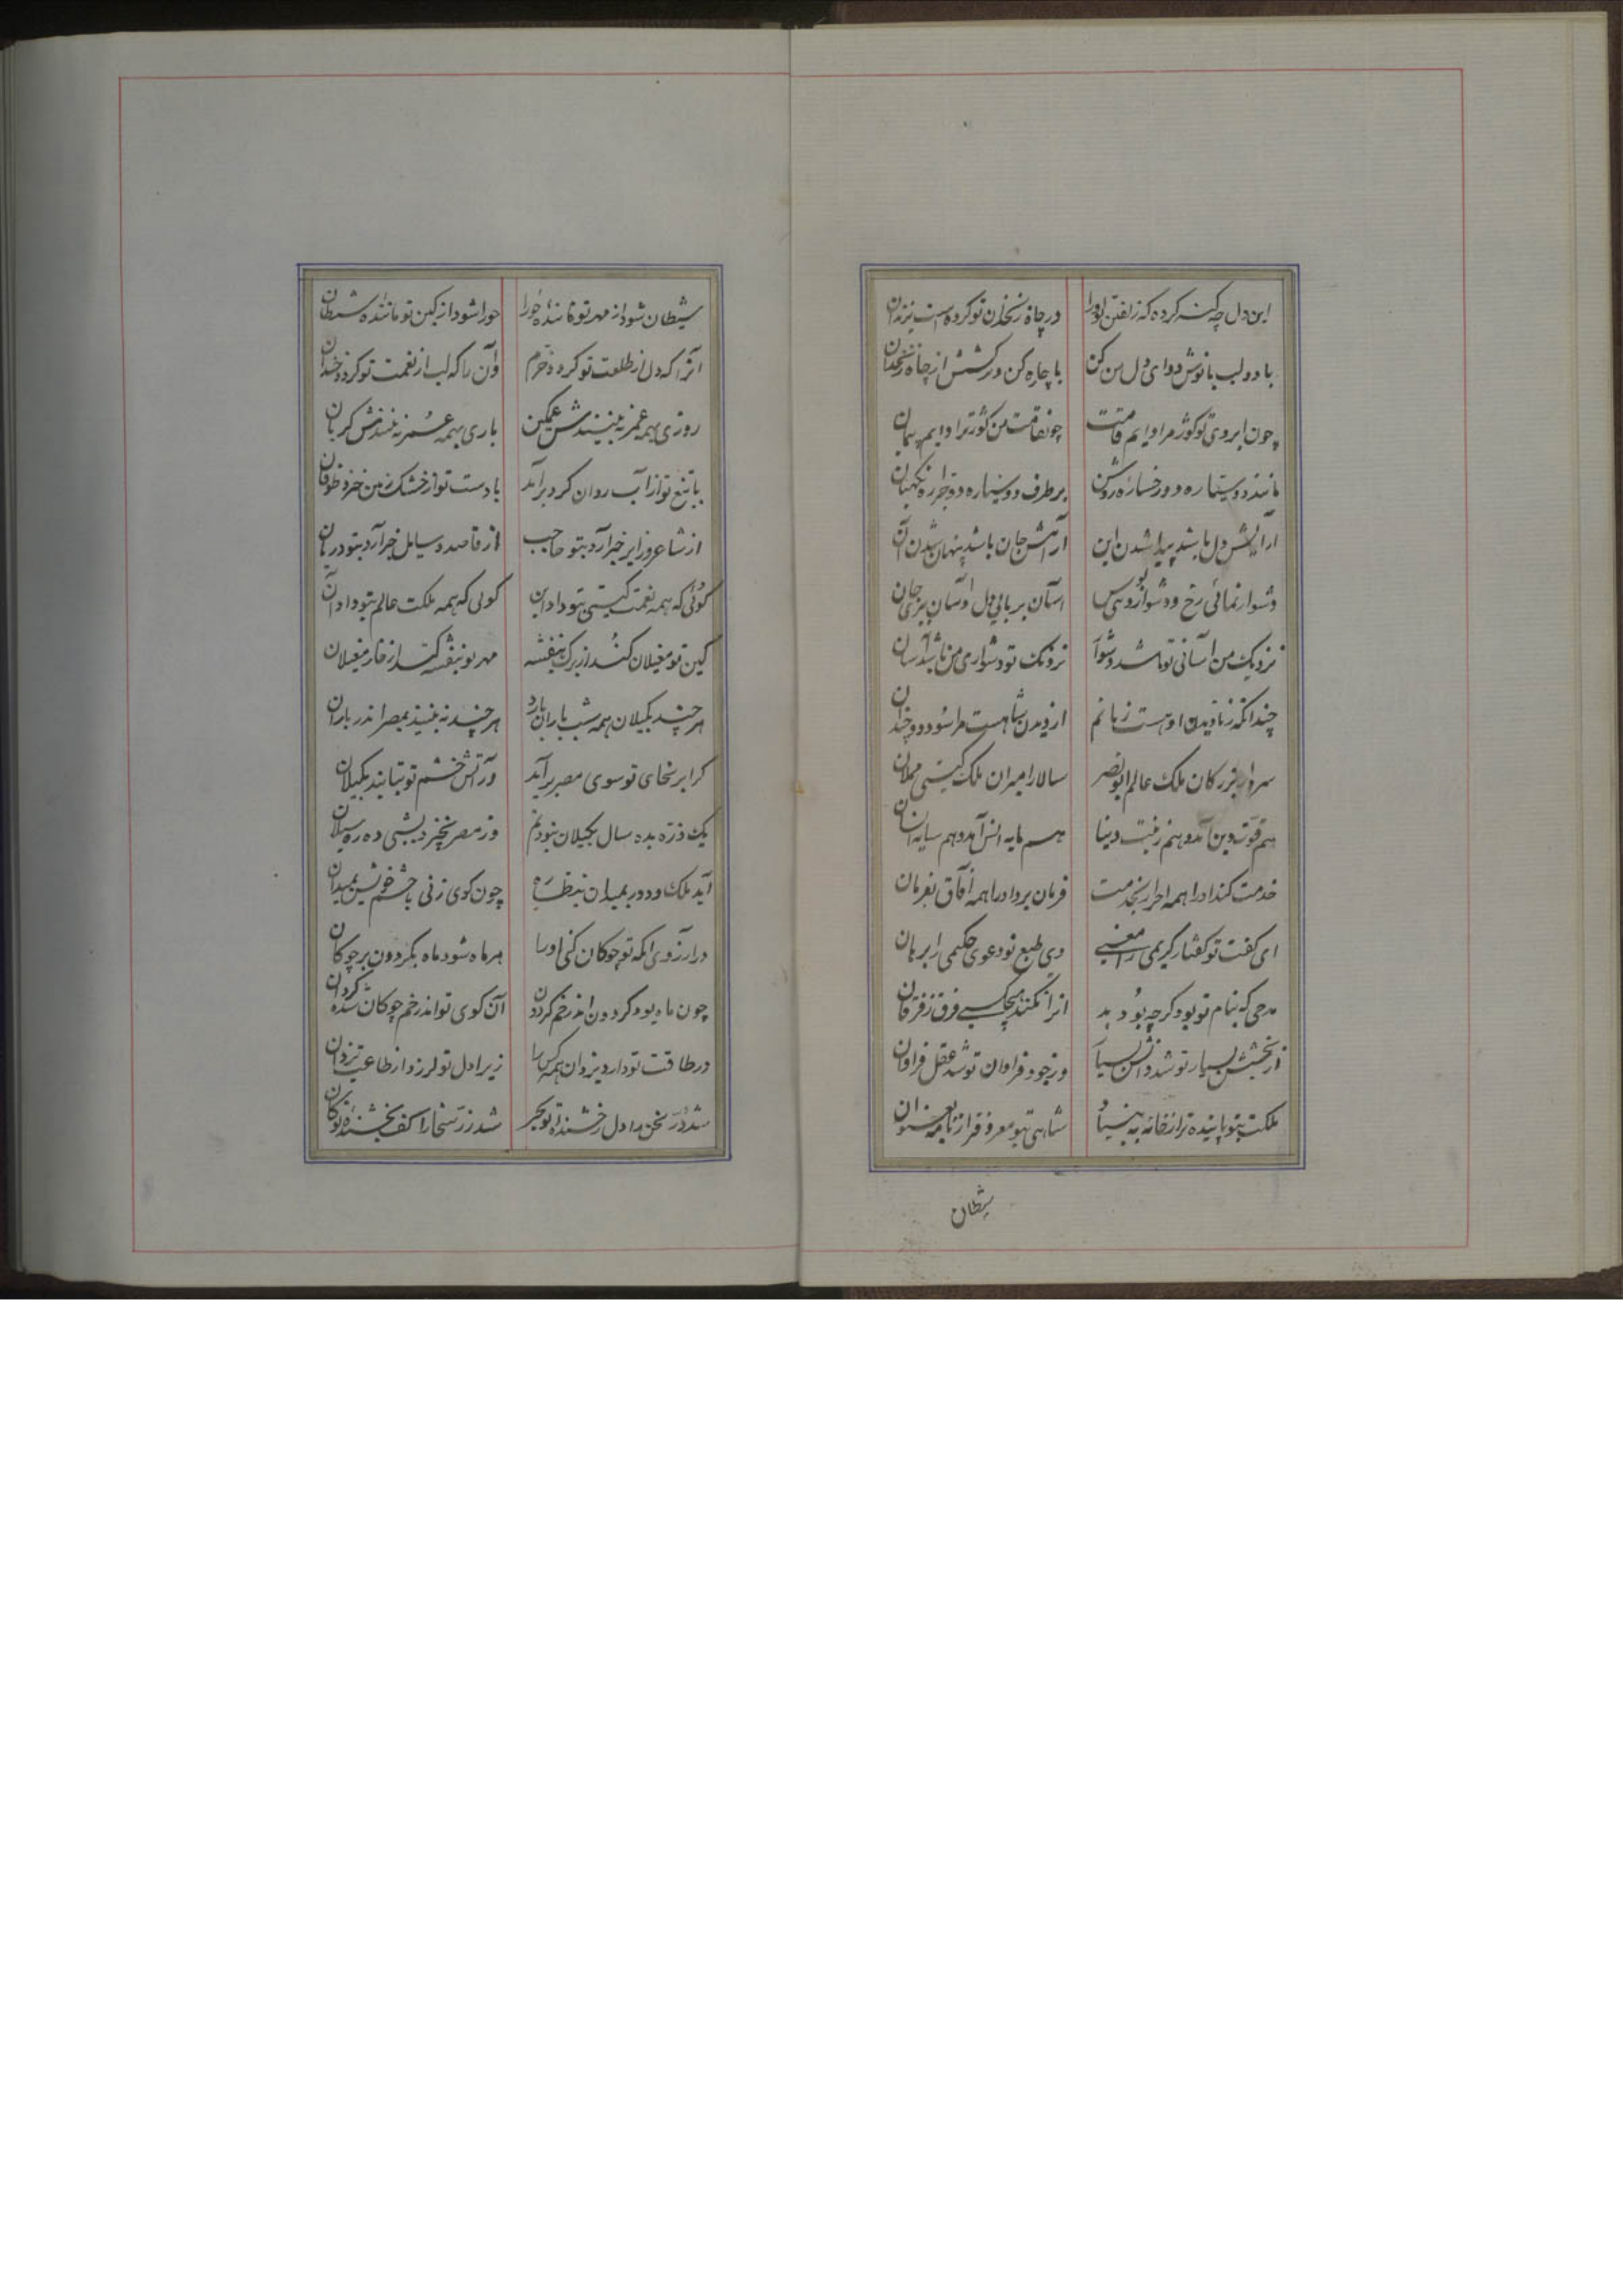 این دل چه گنه کرده که زلفین تو او را در چاه زنخدان تو کرده است بزندان
با دو لب با نوش دوای دل من کن یا چاره کن و برکشش از چاه زنخدان
چون ابروی تو کوژ مرا دایم قامت چون قامت من کوژ ترا دایم پیمان
مانند دو سیاره دو رخساره روشن بر طرف دو سیاره دو جراره نکهبان
آرایش دل باشد پیدا شدن این آرامش جان باشد پنهان شدن آن
دشوار نمائی رخ و دشوار دهی بوس آسان بربائی دل و آسان ببری جان
نزدیک من آسانی تو باشد دشوار نزدیک تو دشواری من باشد آسان
چندانکه ز نادیدن او هست زیانم از دیدن شاه است مرا سود دو چندان
سردار بزرکان ملک عالم ابونصر سالار امیران ملک کیتی مملان
هم قوت دین آمد و هم زینت دنیا هم مایه انس آمد و هم سایه انسان
خدمت کند او را همه احرار بخدمت فرمان برد او را همه آفاق بفرمان
ای کفت تو کفتار کریمی را معنی وی طبع تو دعوی حکیمی را برهان
مدحی که بنام تو بود کرچه بود بد آنرا نکند هیچکسی فرق ز فرقان
از بخشش بسیار تو شد دانش بسیار وز جود فراوان تو شد عقل فراوان
ملکت بتو پاینده تر از خانه به بنیاد شاهی بتو معروفتر از نامه بعنوان
شیطان
شیطان شود از مهر تو مانندهٔ حورا حورا شود از کین تو مانندهٔ شیطان
آنرا که دل از طلعت تو کردد خرم وآن را که لب از نعمت تو کردد خندان
روزی بهمه عمر نبینندش غمکین باری بهمه عمر نبینندش کریان
با تیغ تو از آب روان کرد برآید با دست تو از خشک زمین خیزد طوفان
از شاعر و زایر خبر آرد بتو حاجب از قاصد و سایل خبر آرد بتو دربان
کوئی که همه نعمت کیتی بتو داد این کوئی که همه ملکت عالم بتو داد آن
کین تو مغیلان کند از برک بنفشه مهر تو بنفشه کند از خار مغیلان
هر چند بکیلان همه شب باران بارد هر چند نه بینند بمصر اندر باران
کر ابر سخای تو سوی مصر برآید ور آتش خشم تو بتابد بکیلان
یک ذره بده سال بکیلان نبود نم وز مصر بخیزد بشبی ده ره سیلان
آید ملک و دور بمیدان بنظاره چون کوی زنی با حشم خویش بمیدان
در آرزوی آنکه تو چوکان کنی او را هر ماه شود ماه بکردون بر چوکان
چون ماه بود کردون اندر خم کردون آن کوی تو اندر خم چوکان شده کردان
در طاعت تو دارد یزدان همه کس را زیرا دل تو لرزد از طاعت یزدان
شد در سخن را دل رخشنده تو بحر شد زر سخا را کف بخشندهٔ تو کان